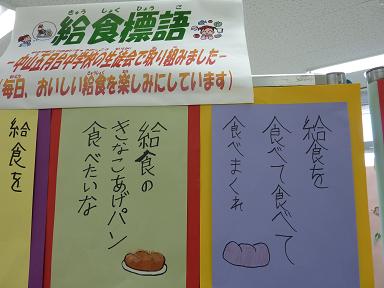 きゅう しょく ひょう ご
給食標語
－中山五月台中学校の生徒会で取り組みました－
(毎日、おいしい給食を楽しみにしています)
給食を
食べて食べて
食べまくれ
給食の
きなこあげパン
食べたいな
給食を